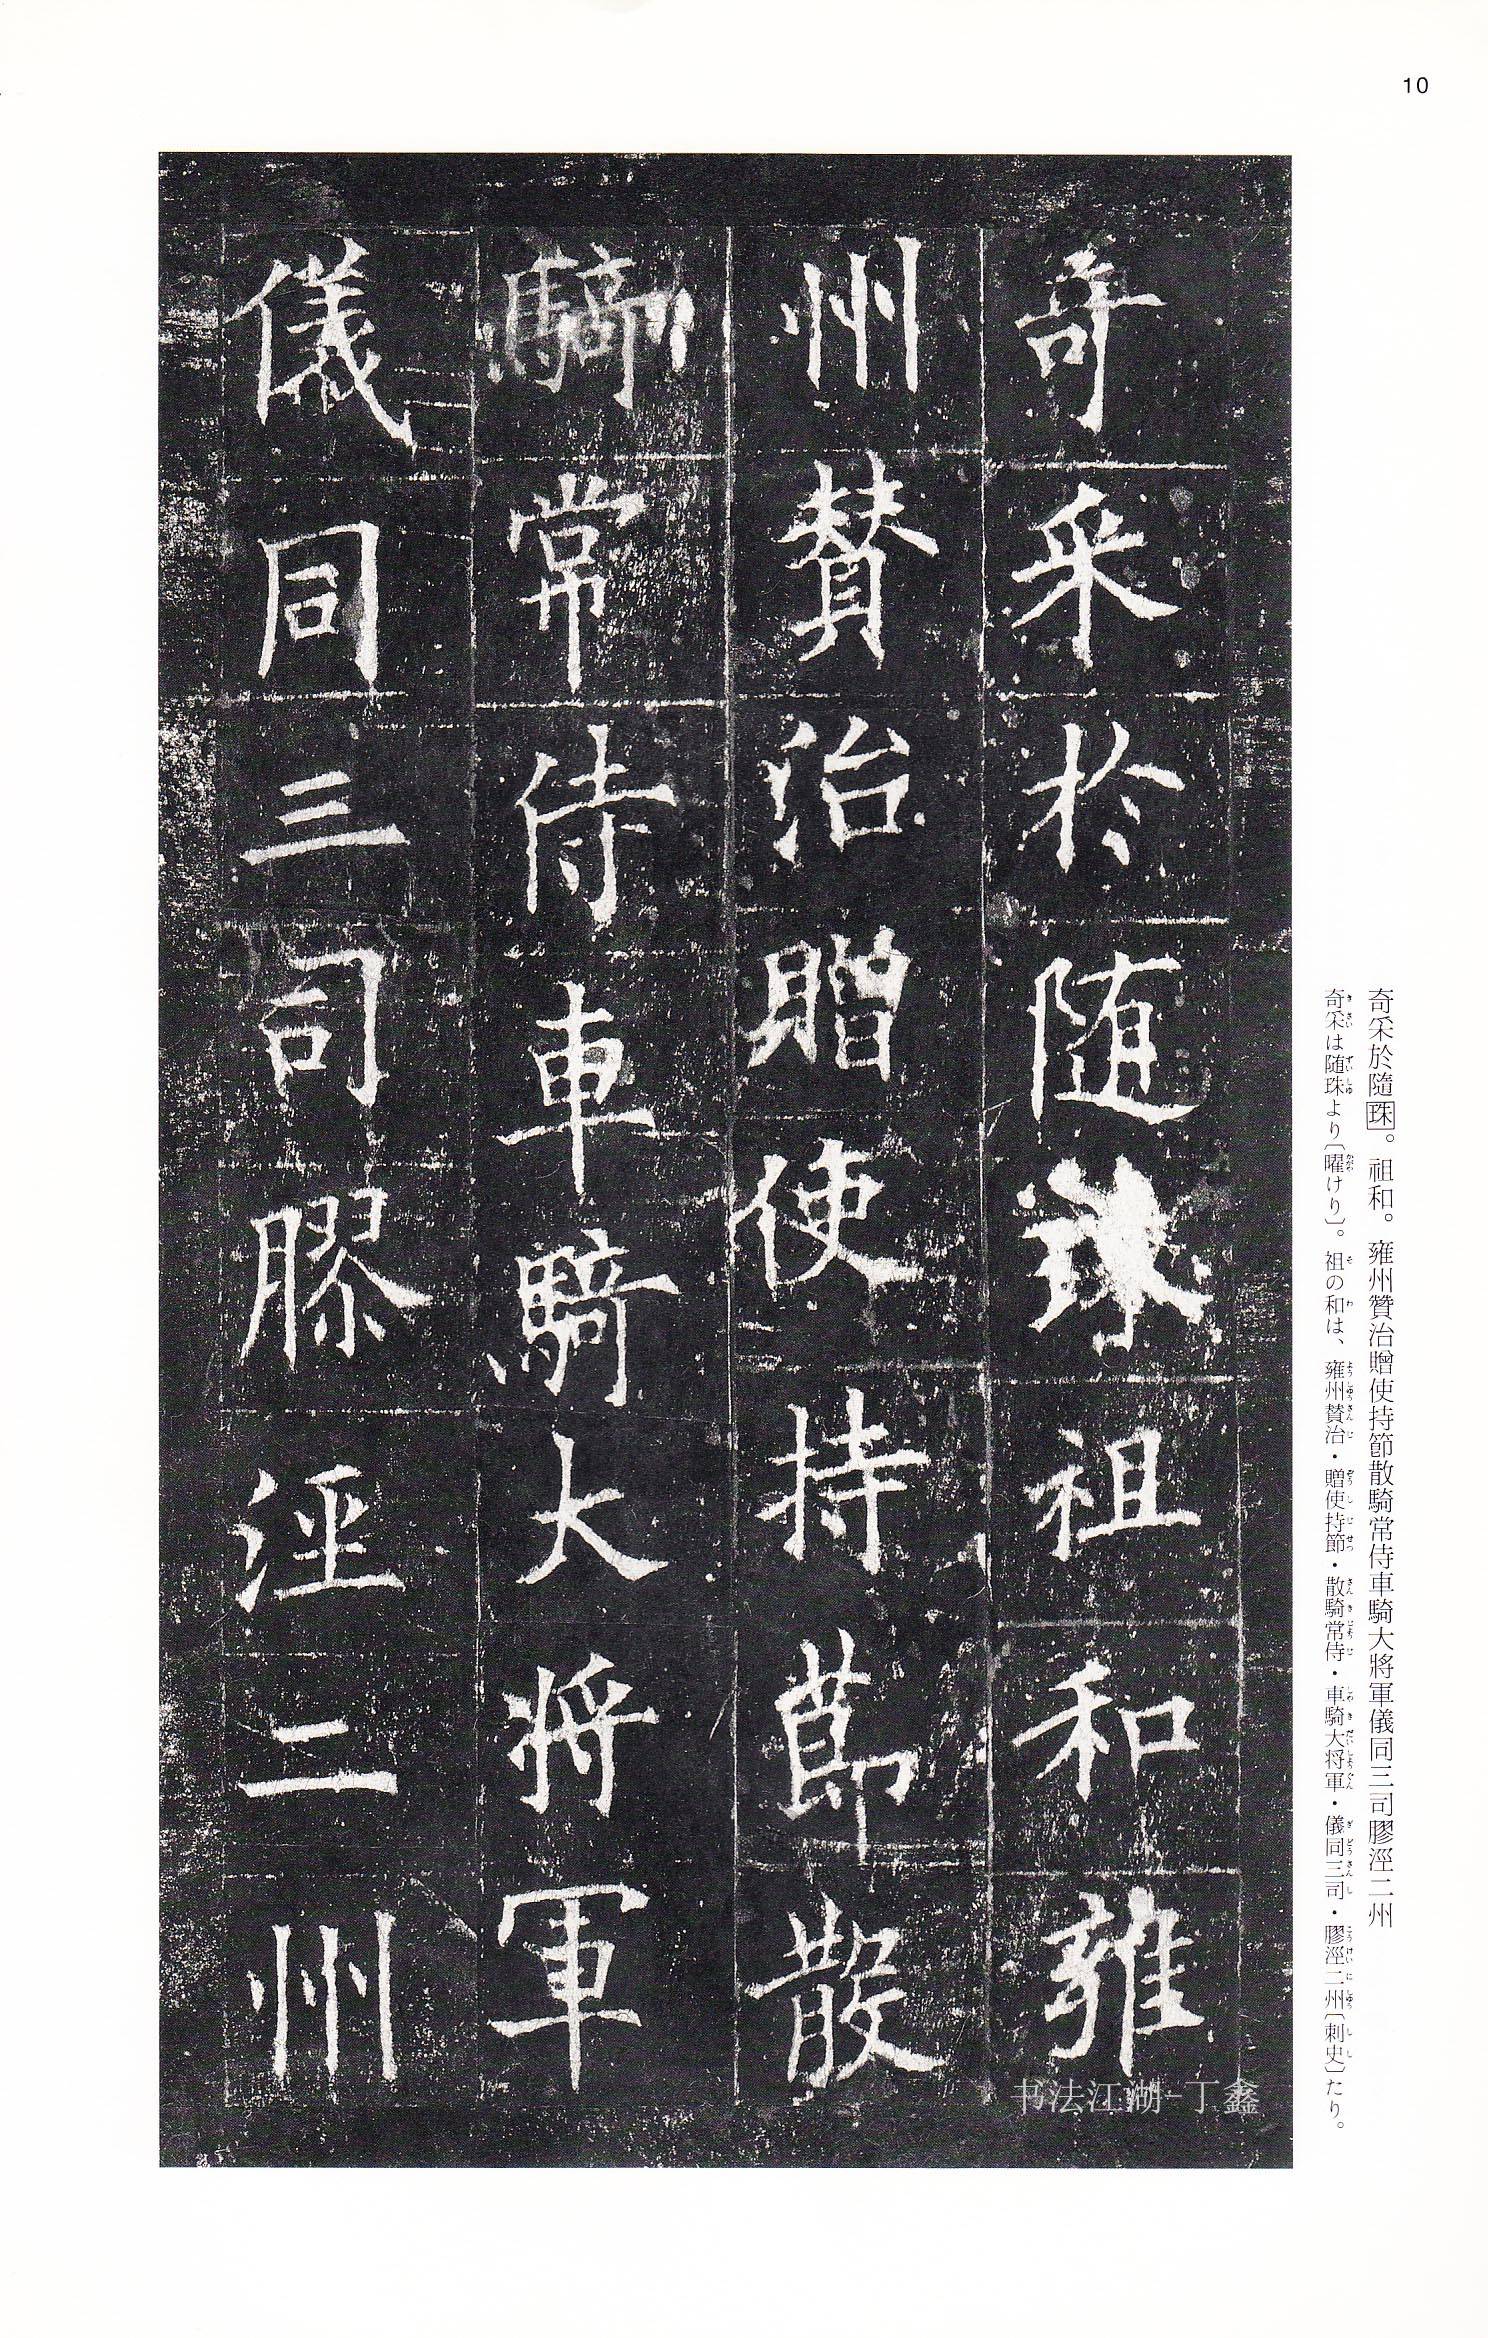 10
奇采於隨珠。祖和。雍州贊治贈使持節散騎常侍車騎大將軍儀同三司膠涇二州
奇采は随珠より〔曜けり〕。祖の和は、雍州賛治・贈使持節・散騎常侍・車騎大将軍・儀同三司・膠涇二州〔刺史〕たり。
奇采於随珠祖和雍
州贊治贈使持節散
騎常侍車騎大將軍
儀同三司膠涇二州
书法江湖-丁鑫